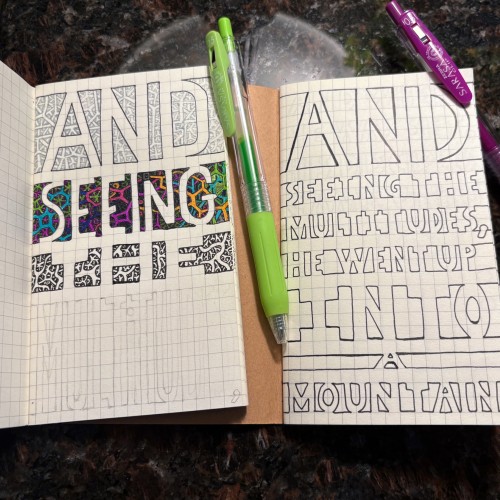 AND
SEEING
THE
AND
SEEING THE
MULTITUDES,
HE WENT UP
INTO
A
MOUNTAIN
SARASA